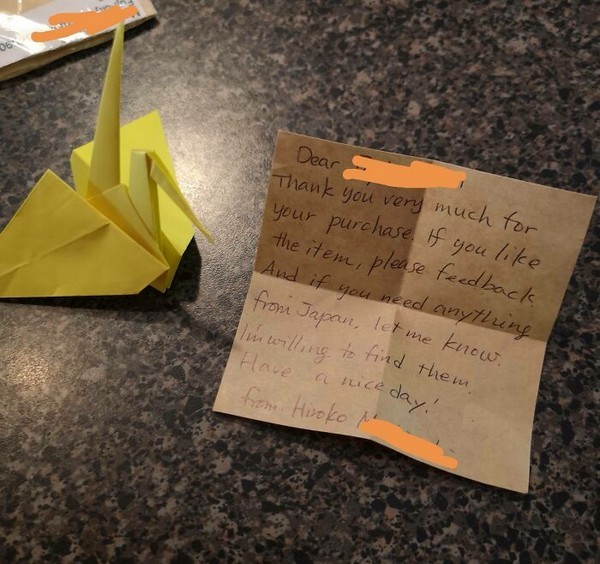 Dear
Thank you very much for
your purchase. If you like
the item, please feedback
And if you need anything
from Japan, let me know.
I'm willing to find them.
Have a nice day!
from Hiroko